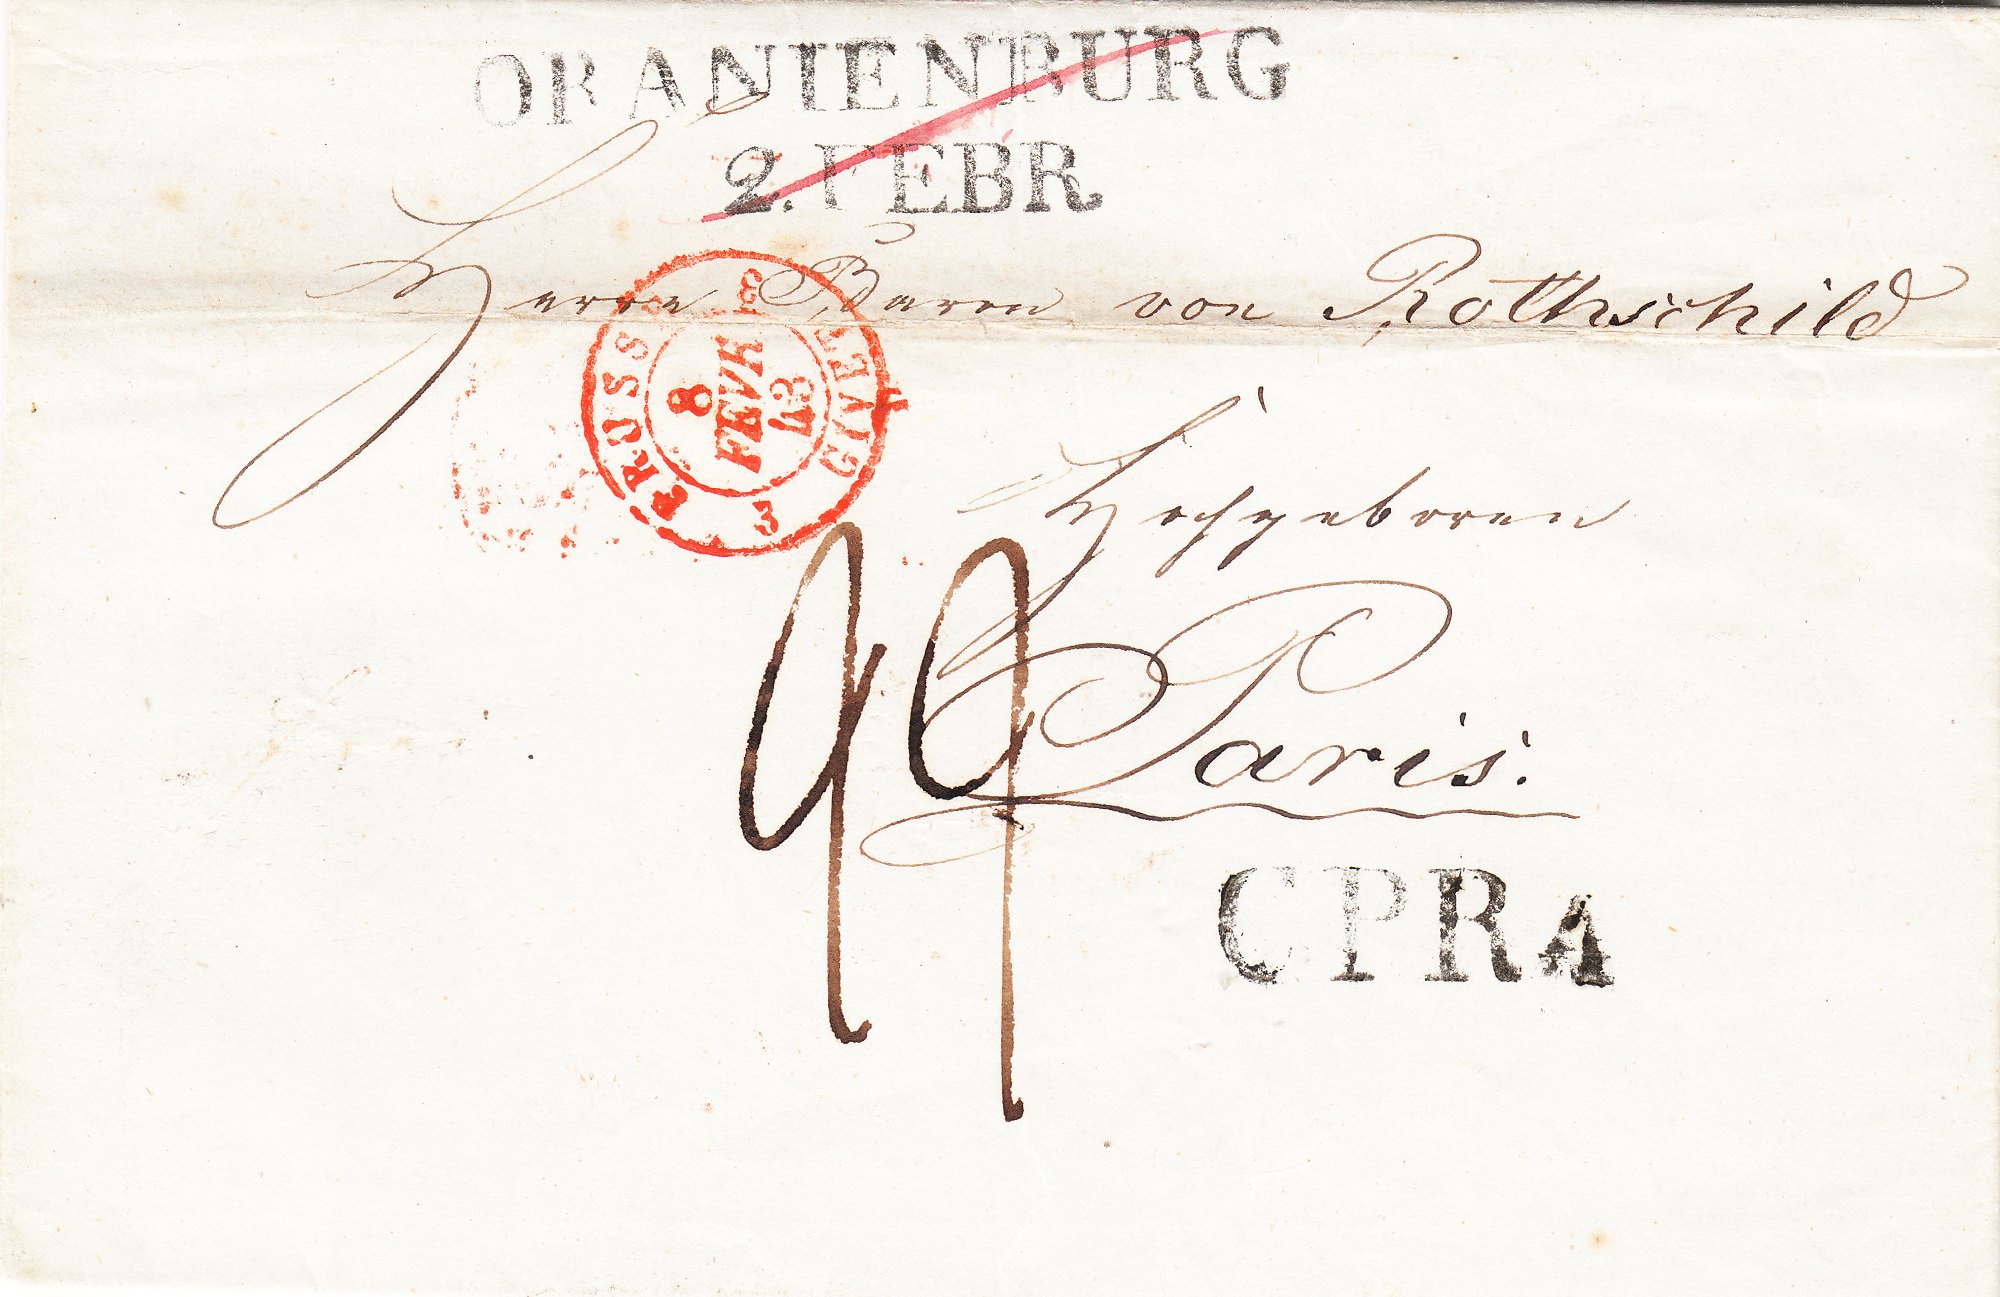 ORANIENBURG
2. FEBR.
Herrn Baron von Rothschild
PRUSSE
GIVET
3
8
FEVR
43
Hochgeboren
Paris.
CPR4